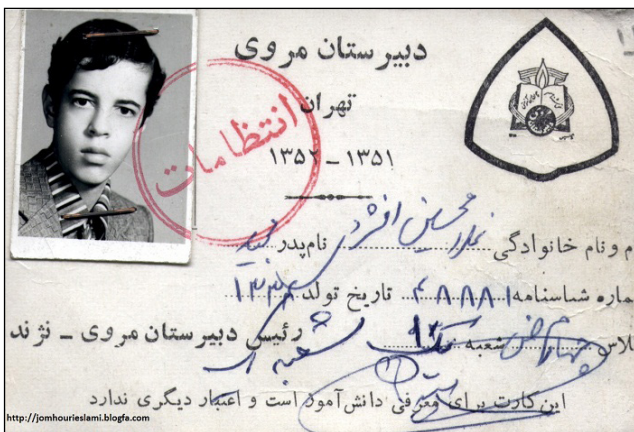 دبیرستان مروی
تهران
انتظامات
۱۳۵۱ – ۱۳۵۲
م و نام خانوادگی غلامحسین افشردی نام پدر
ماره شناسنامه ۴۸۸۸۱ تاریخ تولد
لاس چهارم شعبه رئیس دبیرستان مروی – نژند
این کارت برای معرفی دانش‌آموز است و اعتبار دیگری ندارد
http://jomhourieslami.blogfa.com